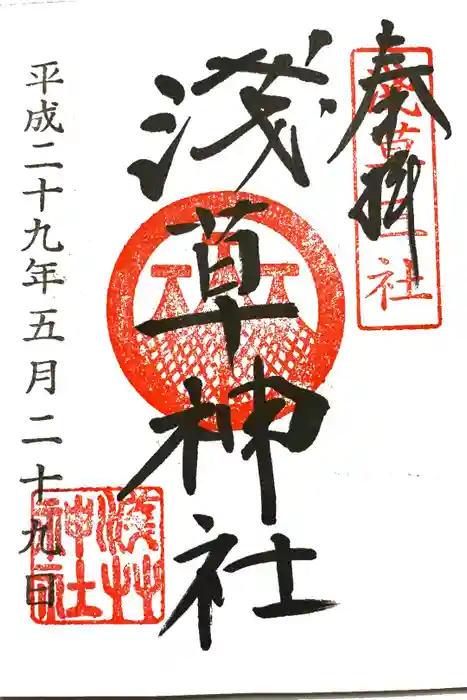 奉拝
浅草神社
平成二十九年五月二十九日
浅草神社